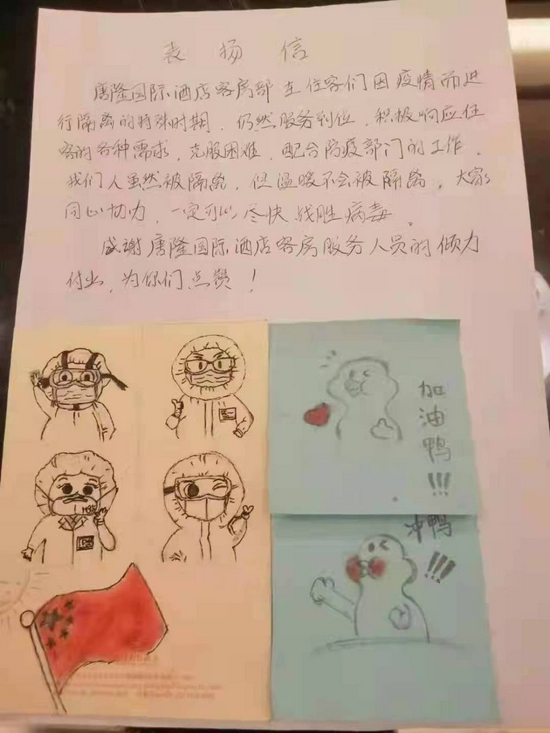 表扬信
唐隆国际酒店客房部在住客们因疫情而进
行隔离的特殊时期,仍然服务到位,积极响应住
客的各种需求,克服困难,配合防疫部门的工作。
我们人虽然被隔离,但温暖不会被隔离。大家
同心协力,一定可以尽快战胜病毒。
感谢唐隆国际酒店客房服务人员的倾力
付出,为你们点赞!
加油鸭!!!
冲鸭!!!